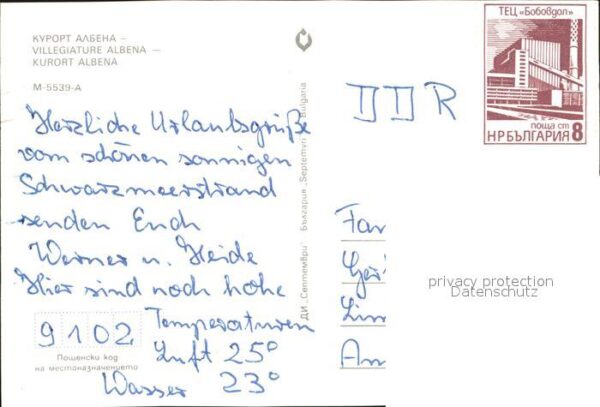 КУРОРТ АЛБЕНА –
VILLEGIATURE ALBENA —
KURORT ALBENA
М-5539-А
Herzliche Urlaubsgrüße
vom schönen sonnigen
Schwarzmeerstrand
senden Euch
Werner u. Heide
Hier sind noch hohe
Temperaturen
Luft 25°
Wasser 23°
9102
Пощенски код
на местоназначението
ДИ „Септември" България „Septemvri" Bulgaria
ТЕЦ „Бобовдол"
поща ст 8
НРБЪЛГАРИЯ
DDR
Fa
Ger
Lin
privacy protection
Datenschutz